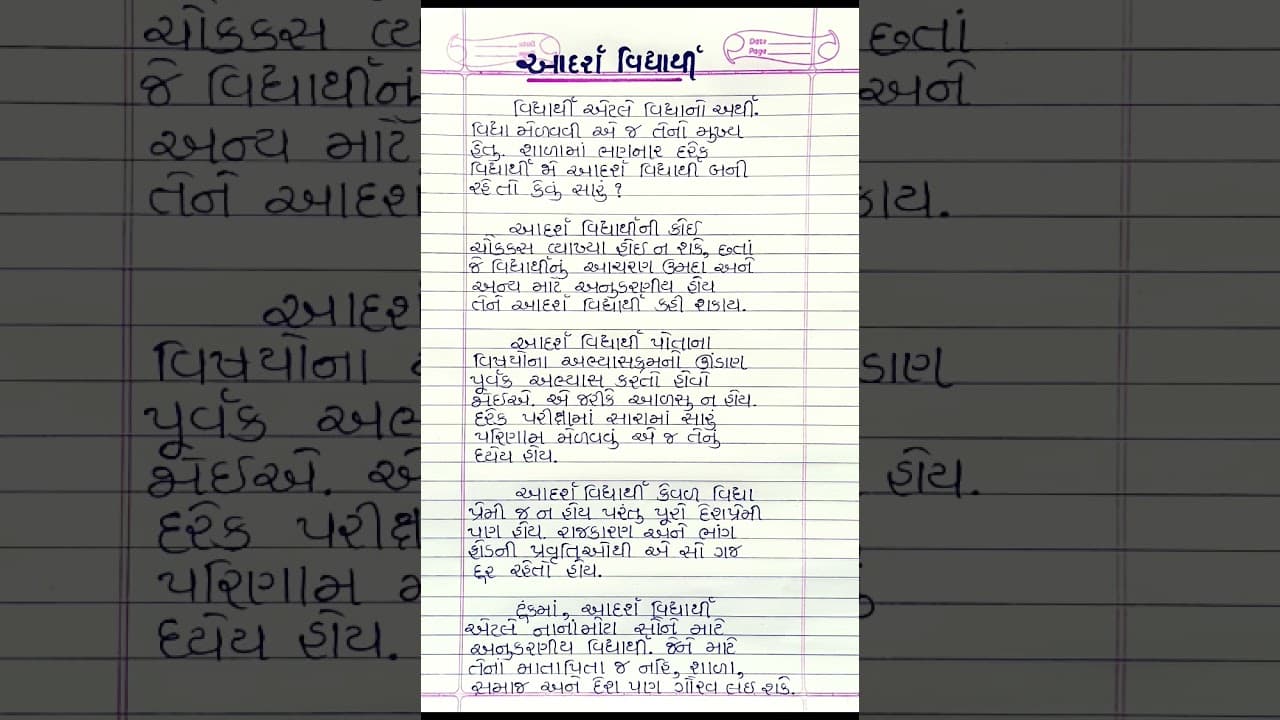 આદર્શ વિદ્યાર્થી
Date
Page
વિદ્યાર્થી એટલે વિદ્યાનો અર્થી.
વિદ્યા મેળવવી એ જ તેનો મુખ્ય
હેતુ. શાળામાં ભણનાર દરેક
વિદ્યાર્થી જો આદર્શ વિદ્યાર્થી બની
રહે તો કેવું સારું ?
આદર્શ વિદ્યાર્થીની કોઈ
ચોક્કસ વ્યાખ્યા હોઈ ન શકે, છતાં
જે વિદ્યાર્થીનું આચરણ ઉમદા અને
અન્ય માટે અનુકરણીય હોય
તેને આદર્શ વિદ્યાર્થી કહી શકાય.
આદર્શ વિદ્યાર્થી પોતાના
વિષયોના અભ્યાસક્રમનો ઊંડાણ
પૂર્વક અભ્યાસ કરતો હોવો
જોઈએ. એ જરીકે આળસુ ન હોય.
દરેક પરીક્ષામાં સારામાં સારું
પરિણામ મેળવવું એ જ તેનું
ધ્યેય હોય.
આદર્શ વિદ્યાર્થી કેવળ વિદ્યા
પ્રેમી જ ન હોય પરંતુ પૂરો દેશપ્રેમી
પણ હોય. રાજકારણ અને ભાંગ
ફોડની પ્રવૃત્તિઓથી એ સો ગજ
દૂર રહેતો હોય.
ટૂંકમાં, આદર્શ વિદ્યાર્થી
એટલે નાનાંમોટાં સૌને માટે
અનુકરણીય વિદ્યાર્થી. જેને માટે
તેનાં માતાપિતા જ નહિ, શાળા,
સમાજ અને દેશ પણ ગૌરવ લઈ શકે.